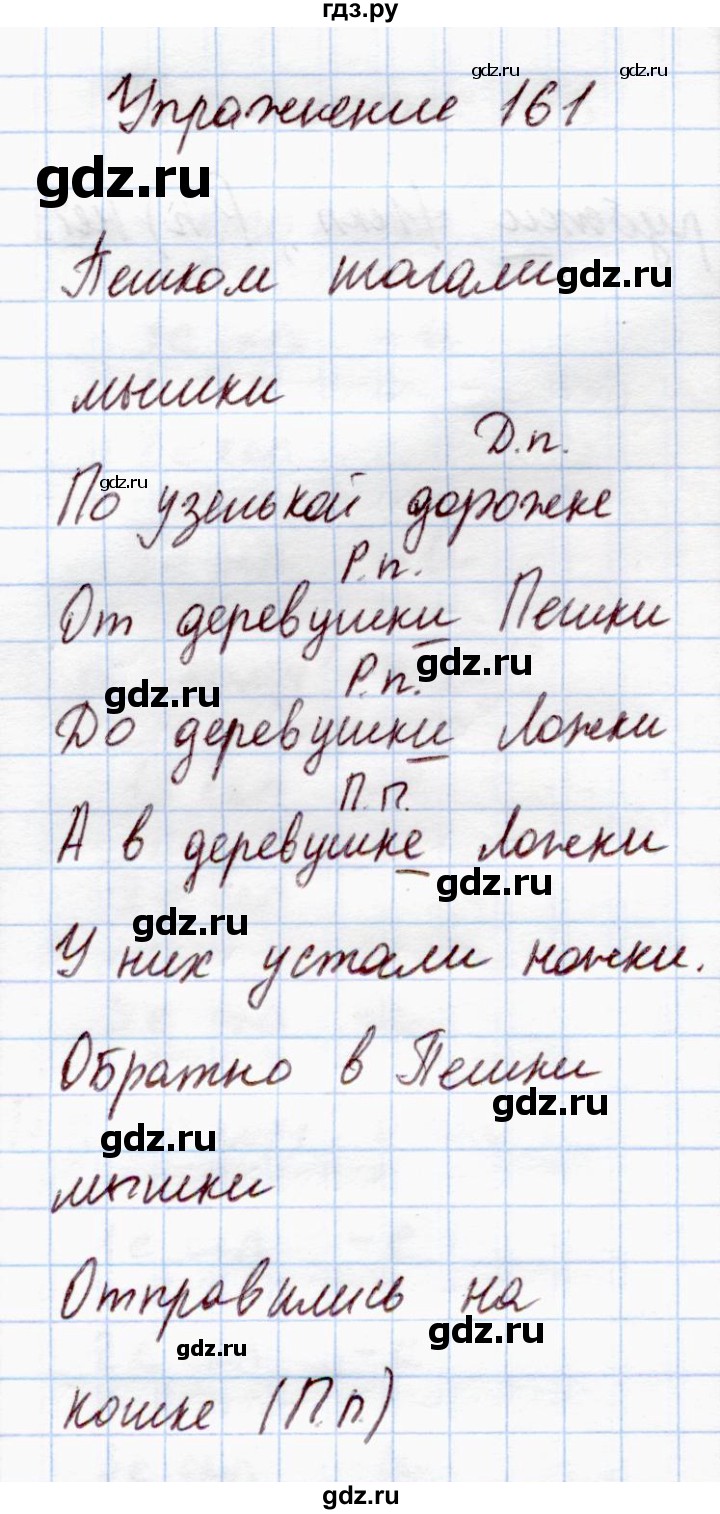 гдз.ру
gdz.ru gdz.ru
Упражнение 161
gdz.ru
Пешком шагали gdz.ru
мышки
Д.п.
gdz.ru
По узенькой дорожке
Р.п.
От деревушки Пешки
gdz.ru
Р.п.
gdz.ru
До деревушки Ложки
П.п.
А в деревушке Ложки
gdz.ru
gdz.ru
У них устали ножки.
Обратно в Пешки
gdz.ru
gdz.ru
мышки
Отправились на
gdz.ru
gdz.ru
кошке (П.п.)
gdz.ru